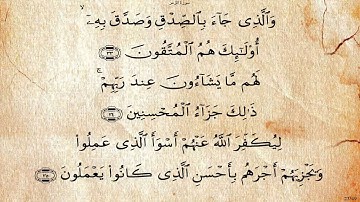 وَٱلَّذِى جَآءَ بِٱلصِّدْقِ وَصَدَّقَ بِهِۦٓ ۙ
أُو۟لَـٰٓئِكَ هُمُ ٱلْمُتَّقُونَ ٣٣
لَهُم مَّا يَشَآءُونَ عِندَ رَبِّهِمْ ۚ
ذَٰلِكَ جَزَآءُ ٱلْمُحْسِنِينَ ٣٤
لِيُكَفِّرَ ٱللَّهُ عَنْهُمْ أَسْوَأَ ٱلَّذِى عَمِلُوا۟
وَيَجْزِيَهُمْ أَجْرَهُم بِأَحْسَنِ ٱلَّذِى كَانُوا۟ يَعْمَلُونَ ٣٥